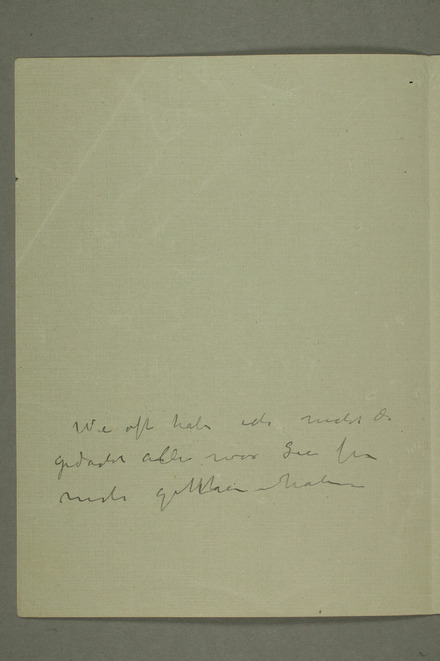 Wie oft habe ich nicht da
gedacht alles was Sie für
mich gethan haben